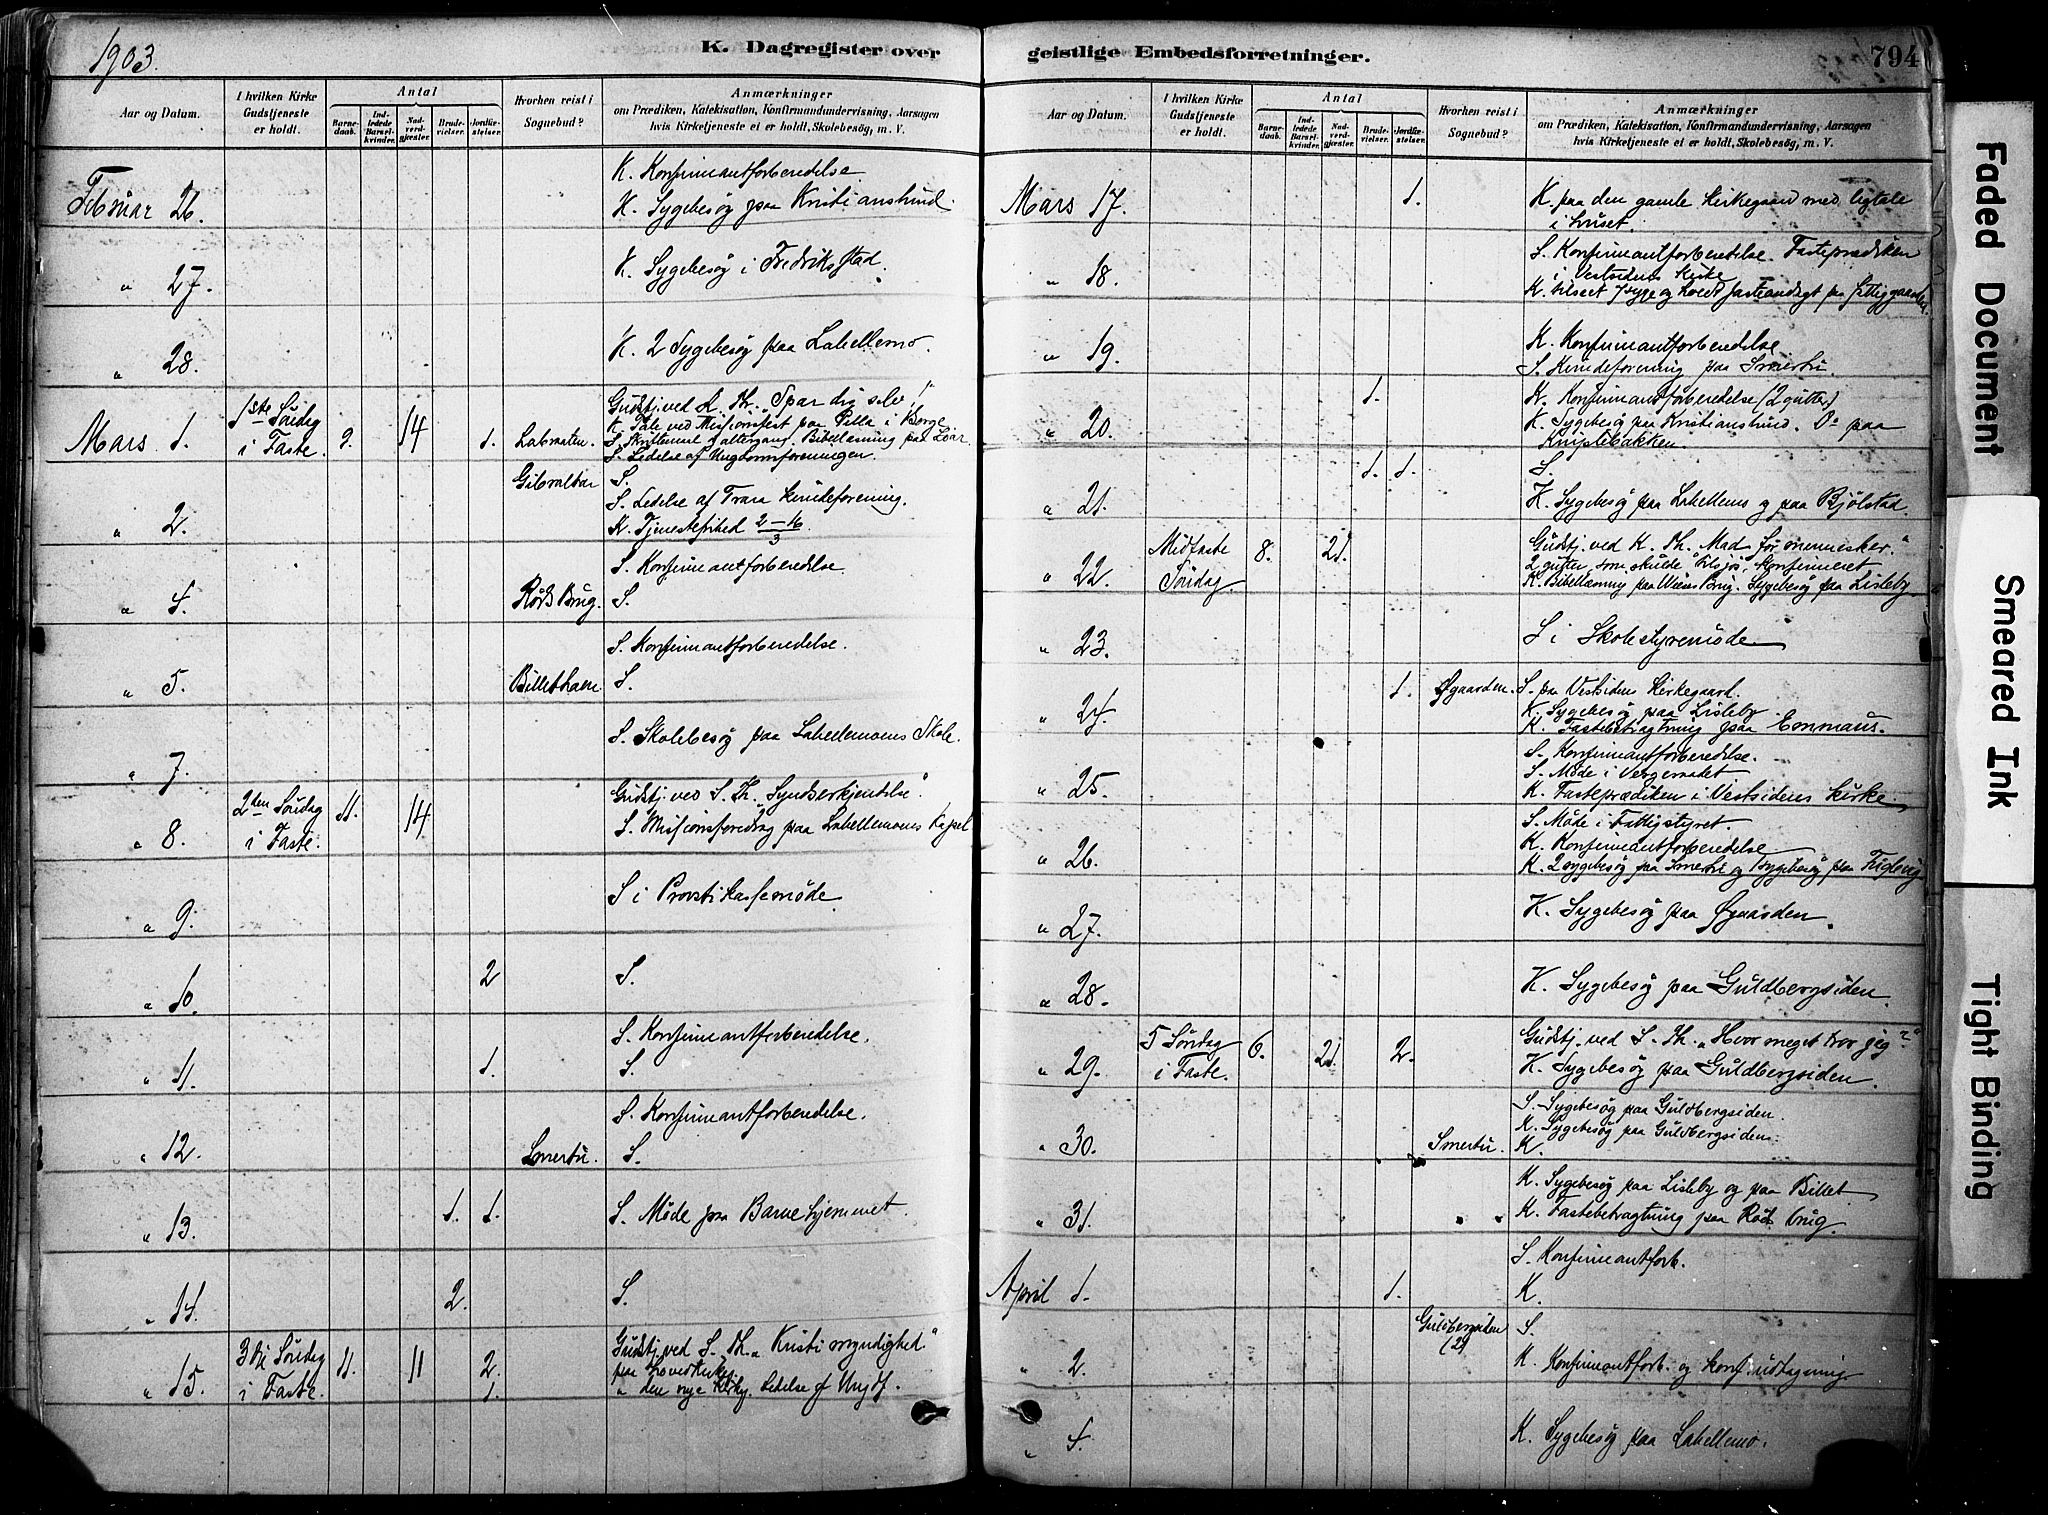 1903.
K. Dagregister over
Aar og Datum.
I hvilken Kirke Gudstjeneste er holdt.
Antal
Barnedaab.
Indledede Barselkvinder.
Nadverdgjester.
Brudevielser.
Jordfæstelser.
Hvorhen reist i Sognebud?
Anmærkninger
om Prædiken, Katekisation, Konfirmandundervisning, Aarsagen
hvis Kirketjeneste ei er holdt, Skolebesøg, m. V.
K. Konfirmantforberedelse.
Februar 26. K. Sygebesøg paa Kristianslund.
" 27. K. Sygebesøg i Fredriksstad.
" 28. K. 2 Sygebesøg paa Labellemo.
Mars 1. 1ste Søndag i Faste. 9. 14 1. Labraaten. Gudstj. ved K. Th. "Spar dig selv!"
K. Tale ved Missionsfest paa i Borge
S. Skriftemaal & altergang. Bibellæsning paa
S. Ledelse af Ungdomsforeningen.
" 2. Gibraltar S.
S. Ledelse af Trara Kvindeforening.
K. Tjenestefrihed 2-16/3
" 4. S. Konfirmantforberedelse
Røds Brug. S.
" 5. S. Konfirmantforberedelse.
Billethavn. S.
" 7. S. Skolebesøg paa Labellemoens Skole.
" 8. 2den Søndag i Faste. 11. 14 Gudstj. ved S. Th. "Syndserkjendelse".
S. Missionsforedrag paa Labellemoens Kapel
" 9. S i Provstikassemøde.
" 10. 2 S.
" 11. S. Konfirmantforberedelse.
1. S.
" 12. S. Konfirmantforberedelse.
Smertu. S.
" 13. 1. 1. S. Møde paa Barnehjemmet
" 14. 2. S.
" 15. 3die Søndag i Faste. 11. 11 2. Gudstj. ved S. Th. "Kristi myndighed"
paa Hovedkirkeg.
1. " den nye Kirkg. Ledelse af Ungdf.
geistlige Embedsforretninger.
794
Aar og Datum.
I hvilken Kirke Gudstjeneste er holdt.
Antal
Barnedaab.
Indledede Barselkvinder.
Nadverdgjester.
Brudevielser.
Jordfæstelser.
Hvorhen reist i Sognebud?
Anmærkninger
om Prædiken, Katekisation, Konfirmandundervisning, Aarsagen
hvis Kirketjeneste ei er holdt, Skolebesøg, m. V.
Mars 17. 1. K. paa den gamle Kirkegaard med ligtale
i huset.
" 18. S. Konfirmantforberedelse. Fasteprædiken
i Vestsidens Kirke
K. tilseet syge og holdt fasteandagt paa fattiggaarden.
" 19. K. Konfirmantforberedelse
S. Kvindeforening paa Smertu.
" 20. 1. K. Konfirmantforberedelse (2 gutter)
K. Sygebesøg paa Kristianslund. Do paa
Knipslebakken.
" 21. 1. 1. S.
K. Sygebesøg paa Labellemo og paa Bjølstad.
" 22. Midfaste Søndag. 8. 21. Gudstj. ved K. Th. Mad for mennesker."
2 gutter, som skulde tilsjøs, konfirmeret
K. Bibellæsning paa Brug. Sygebesøg paa Lisleby
" 23. S i Skolestyremøde
" 24. 1. Øgaarden. S. paa Vestsidens Kirkegaard.
K. Sygebesøg paa Lisleby
K. Fastebetragtning paa Emmaus.
" 25. S. Konfirmantforberedelse.
S. Møde i Vergeraadet
K. Fasteprædiken i Vestsidens Kirke
" 26. S. Møde i Fattigstyret.
K. Konfirmantforberedelse
K. 2 sygebesøg paa Smertu og Sygebesøg paa Fuglevig
" 27. K. Sygebesøg paa Øgaarden.
" 28. K. Sygebesøg paa Guldbergsiden.
" 29. 5 Søndag i Faste. 6. 21. 2. Gudstj. ved S. Th. "Hvor meget tror jeg?"
K. Sygebesøg paa Guldbergsiden.
" 30. S. Sygebesøg paa Guldbergsiden.
K. Sygebesøg paa Guldbergsiden.
Smertu. K.
" 31. K. Sygebesøg paa Lisleby og paa Billet
K. Fastebetragtning paa Røds brug
S. Konfirmantforb.
April 1. 1. K.
" 2. Guldbergsiden (2) S.
K. Konfirmantforb. og konf. udtagning
" 4. K. Sygebesøg paa Labellemo.
Faded Document
Smeared Ink
Tight Binding